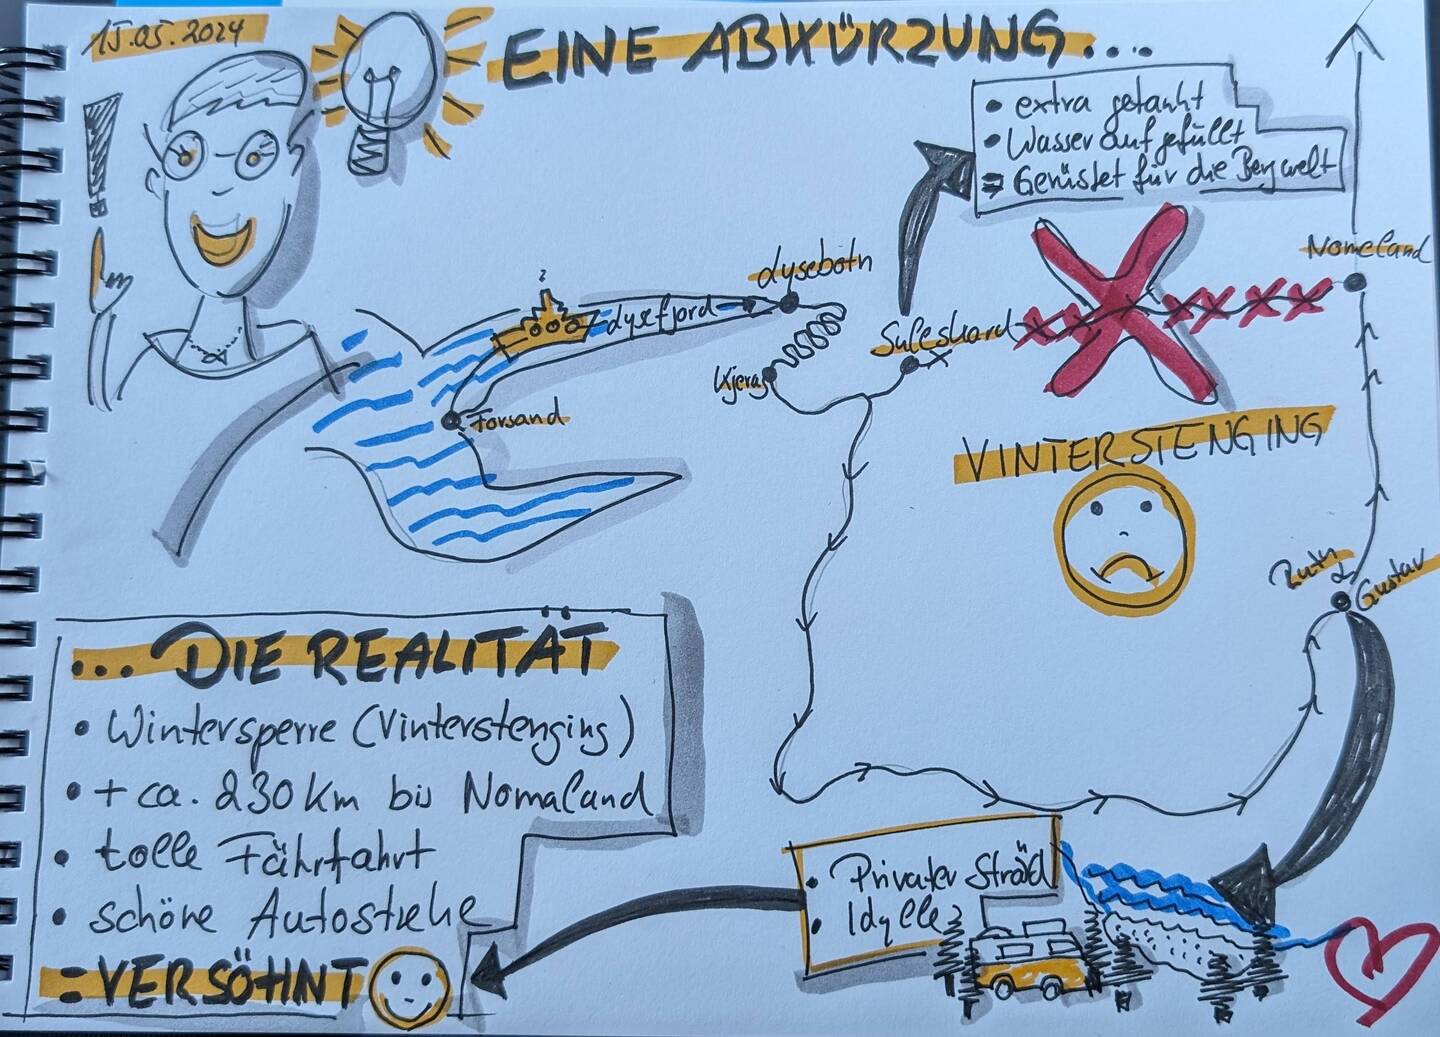 15.05.2024
EINE ABKÜRZUNG....
• extra getankt
• Wasser aufgefüllt
= Gerüstet für die Bergwelt
Nomeland
Lysebotn
Lysefjord
Suleskard
Kjerag
Forsand
VINTERSTENGING
Gustav
... DIE REALITÄT
• Wintersperre (Vinterstenging)
• + ca. 230 Km bis Nomaland
• tolle Fährfahrt
• schöne Autostrecke
= VERSÖHNT
• Privater Strand
• Idylle